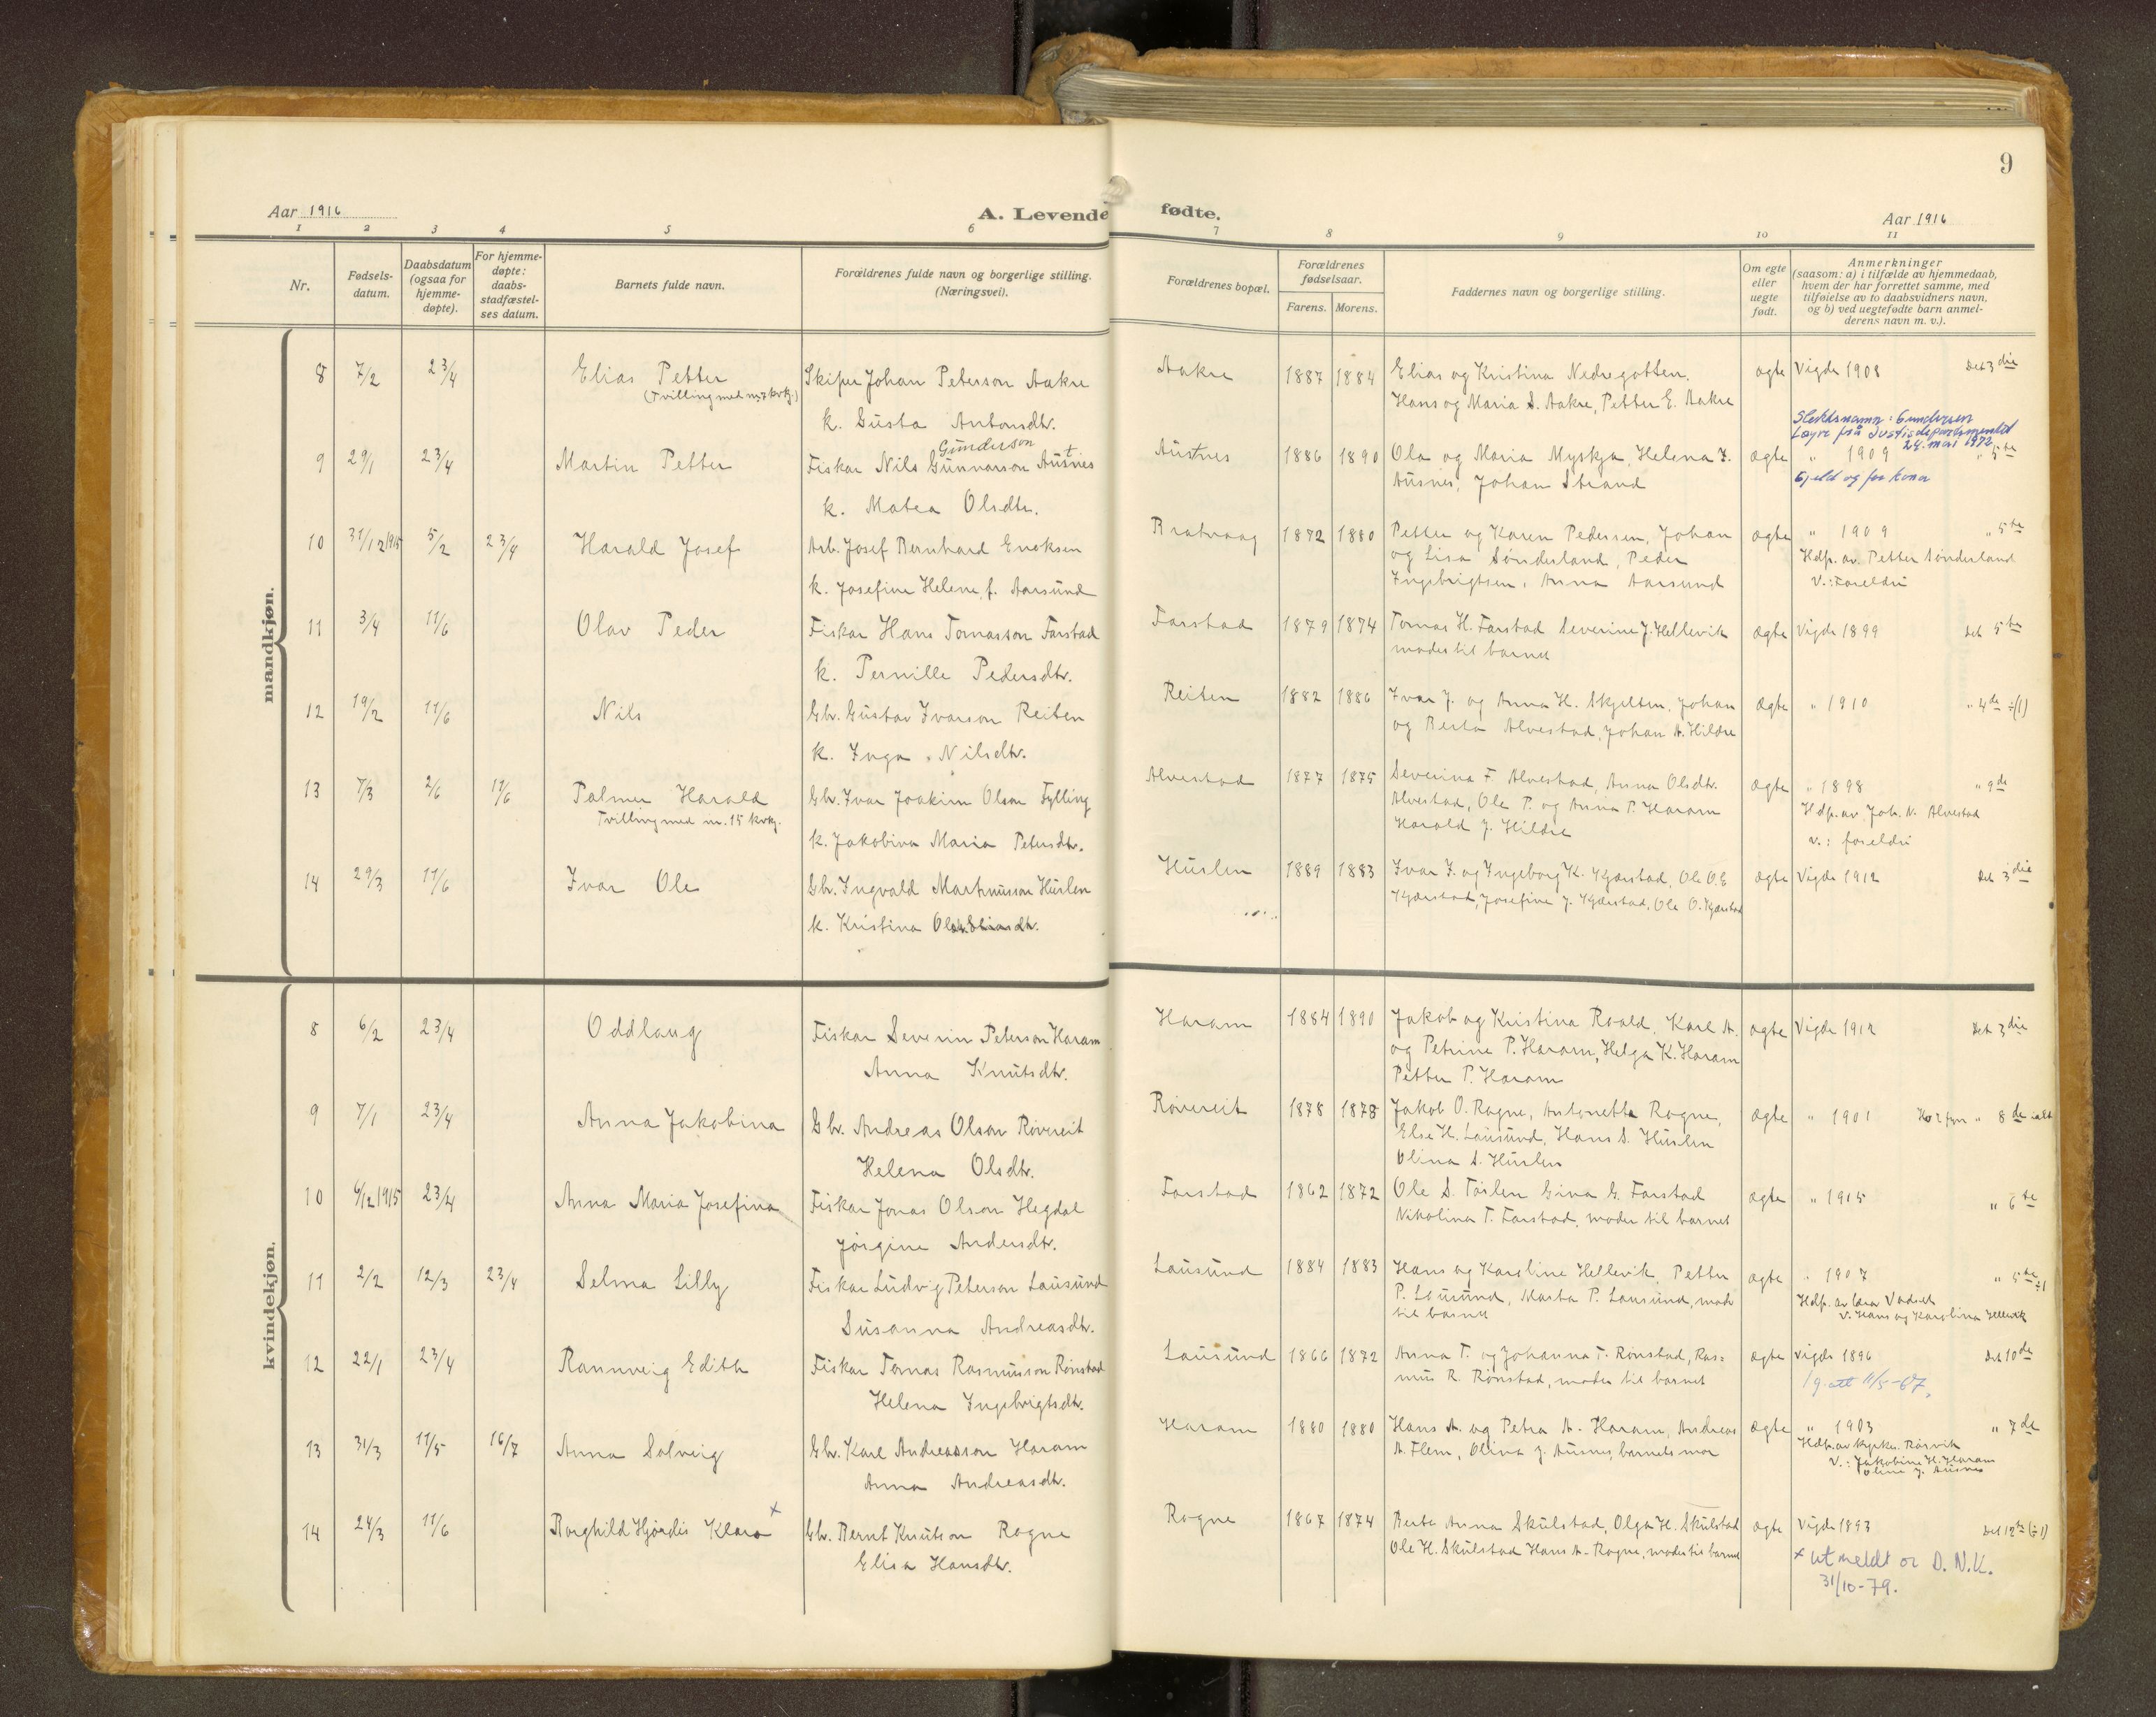 9
Aar 1916
A. Levende fødte.
Aar 1916
1 2 3 4 5 6 7 8 9 10 11
Nr.
Fødsels-
datum.
Daabsdatum
(ogsaa for
hjemme-
døpte).
For hjemme-
døpte:
daabs-
stadfæstel-
ses datum.
Barnets fulde navn.
Forældrenes fulde navn og borgerlige stilling.
(Næringsvei).
Forældrenes bopæl.
Forældrenes
fødselsaar.
Farens. Morens.
Faddernes navn og borgerlige stilling.
Om egte
eller
uegte
født.
Anmerkninger
(saasom: a) i tilfælde av hjemmedaab,
hvem der har forrettet samme, med
tilføielse av to daabsvidners navn,
og b) ved uegtefødte barn anmel-
derens navn m. v.).
mandkjøn.
8 7/2 23/4 Elias Petter Skiper Johan Peterson Aakre Aakre 1887 1884 Elias og Kristina Nedregotten. ægte Vigde 1908 Det 3die
(Tvilling med nr. 7 kvkj.) k. Gusta Antonsdtr. Hans og Maria S. Aakre, Petter E. Aakre
Slektsnamn: Gundersen
Løyve frå Justisdepartementet
24. mai 1972
Gunderson
9 29/1 23/4 Martin Petter Fiskar Nils Gunnarson Austnes Austnes 1886 1890 Ola og Maria Myskja, Helena J. ægte " 1909 " 5te
k. Matea Olsdtr. Ausnes, Johan Strand Gjeld og for kona
10 31/12 1915 5/2 23/4 Harald Josef Arb. Josef Bernhard Enoksen Bratvaag 1872 1880 Petter og Karen Pedersen, Johan ægte " 1909 " 5te
og Lisa Sønderland, Peder Hdp. av Petter Sønderland
k. Josefine Helene f. Aarsund Ingebrigtsen, Anna Aarsund V.: Foreldri
11 3/4 11/6 Olav Peder Fiskar Hans Tomasson Farstad Farstad 1879 1874 Tomas H. Farstad Severine J. Hellevik ægte Vigde 1899 Det 5te
k. Pernille Pedersdtr. moder til barnet
12 19/2 11/6 Nils Gbr. Gustav Ivarson Reiten Reiten 1882 1886 Ivar J. og Anna H. Skjelten, Johan ægte " 1910 " 4de ÷(1)
k. Inga Nilsdtr. og Berta Alvestad, Johan A. Hildre
13 7/3 2/6 11/6 Palmer Harald Gbr. Ivar Joakim Olson Fylling Alvestad 1877 1875 Severina F. Alvestad, Anna Olsdtr. ægte " 1898 " 9de
Tvilling med nr. 15 kvkj. Alvestad, Ole P. og Anna P. Haram Hdp. av Joh. N. Alvestad
k. Jakobina Maria Petersdtr. Harald J. Hildre v.: foreldri
14 29/3 11/6 Ivar Ole Gbr. Ingvald Martinusson Huslen Huslen 1889 1883 Ivar J. og Ingeborg K. Kjærstad, Ole O. E ægte Vigde 1912 Det 3die
k. Kristina Kjærstad, Josefine J. Kjærstad, Ole O. Kjærstad
kvindekjøn.
8 6/2 23/4 Oddlaug Fiskar Severin Peterson Haram Haram 1884 1890 Jakob og Kristina Roald, Karl A. ægte Vigde 1912 Det 3die
Anna Knutsdtr. og Petrine P. Haram, Helga K. Haram
Petter P. Haram
9 7/1 23/4 Anna Jakobina Gbr. Andreas Olson Røvereit Røvereit 1878 1878 Jakob O. Rogne, Antonette Rogne, ægte " 1901 " 8de
Helena Olsdtr. Else H. Lausund, Hans S. Huslen
Olina S. Huslen
10 6/12 1915 23/4 Anna Maria Josefina Fiskar Jonas Olson Hegdal Farstad 1862 1872 Ole S. Tøslen Gina G. Farstad ægte " 1915 " 6te
Jørgine Andersdtr. Nikolina T. Farstad, moder til barnet
11 2/2 12/3 23/4 Selma Lilly Fiskar Ludvig Peterson Lausund Lausund 1884 1883 Hans og Karoline Hellevik, Petter ægte " 1907 " 5te ÷1
P. Lausund, Marta P. Lausund, mode Hdp. av lærar Vadset
Susanna Andreasdtr. til barnet V. Hans og Karolina Hellevik
12 22/1 23/4 Rannveig Edith Fiskar Tomas Rasmusson Rønstad Lausund 1866 1872 Anna T. og Johanna T. Rønstad, Ras= ægte Vigde 1896 Det 10de
Helena Ingebrigtsdtr. mus R. Rønstad, moder til barnet 1 g. att 11/5-67.
13 31/3 11/5 16/7 Anna Solveig Gbr. Karl Andreasson Haram Haram 1880 1880 Hans A. og Petra A. Haram, Andreas ægte " 1903 " 7de
Anna Andreasdtr. A. Flem, Olina J. Ausnes, barnets mor Hdp. av kyrkes. Rørvik
V.: Jakobine H. Haram
Oline J. Ausnes
14 24/3 11/6 Borghild Hjørdis Klara x Gbr. Bernt Knutson Rogne Rogne 1867 1874 Berte Anna Skulstad, Olga H. Skulstad ægte Vigde 1893 Det 12te (÷1)
Elisa Hansdtr. Ole H. Skulstad Hans A. Rogne, moder til barnet
x utmeldt or D.N.K.
31/10-79.